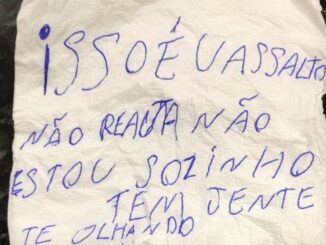 ISSO É UASSALTO
NÃO REAJTA NÃO
ESTOU SOZINHO
TÊM JENTE
TE OLHANDO